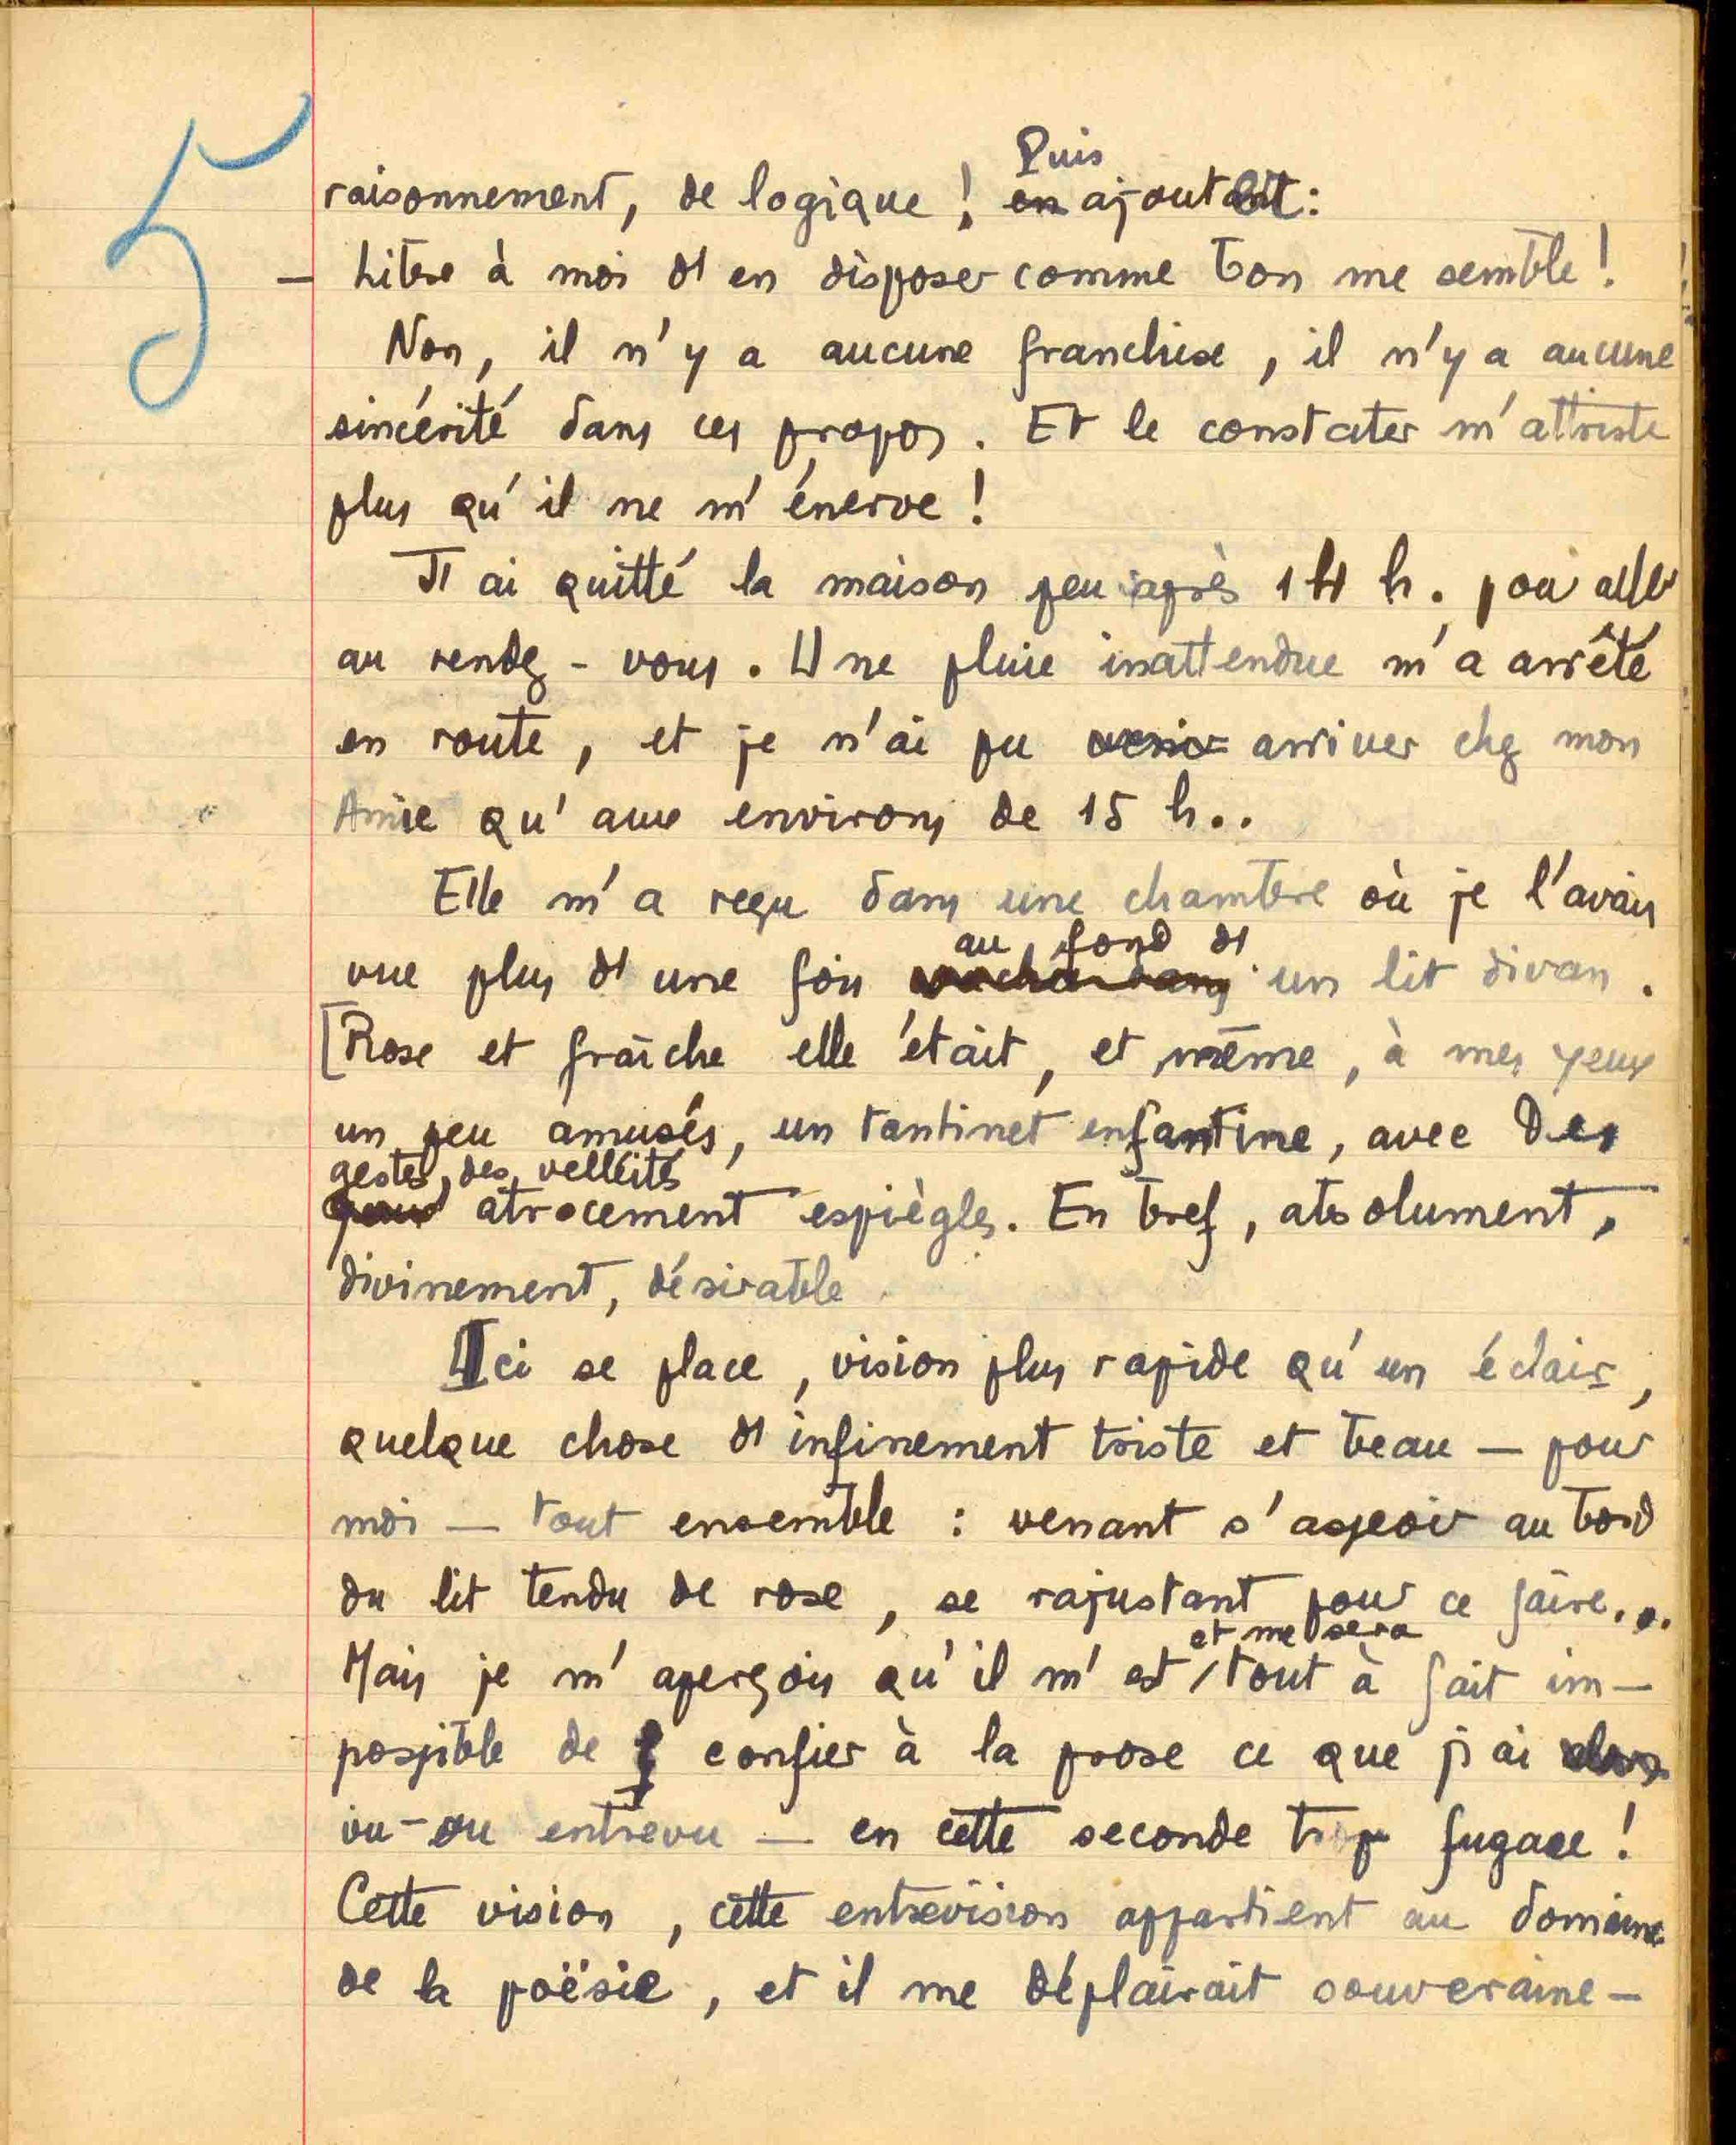 5
Puis
raisonnement, de logique ! en ajoutait :
— Libre à moi d'en disposer comme bon me semble !
Non, il n'y a aucune franchise, il n'y a aucune
sincérité dans ces propos. Et le constater m'attriste
plus qu'il ne m'énerve !
J'ai quitté la maison peu après 14 h. pour aller
au rendez-vous. Une pluie inattendue m'a arrêté
en route, et je n'ai pu venir arriver chez mon
Amie qu'aux environs de 15 h..
Elle m'a reçu dans une chambre où je l'avais
au fond d'
vue plus d'une fois dans un lit divan.
[Rose et fraîche elle était, et même, à mes yeux
un peu amusés, un tantinet enfantine, avec des
gestes, des velléités
atrocement espiègles. En bref, absolument,
divinement, désirable
Ici se place, vision plus rapide qu'un éclair,
quelque chose d'infinement triste et beau — pour
moi — tout ensemble : venant s'asseoir au bord
du lit tendu de rose, se rajustant pour ce faire..
et me sera
Mais je m'aperçois qu'il m'est / tout à fait im-
possible de confier à la prose ce que j'ai
vu — ou entrevu — en cette seconde trop fugace !
Cette vision, cette entrevision appartient au domaine
de la poësie, et il me déplairait souveraine-